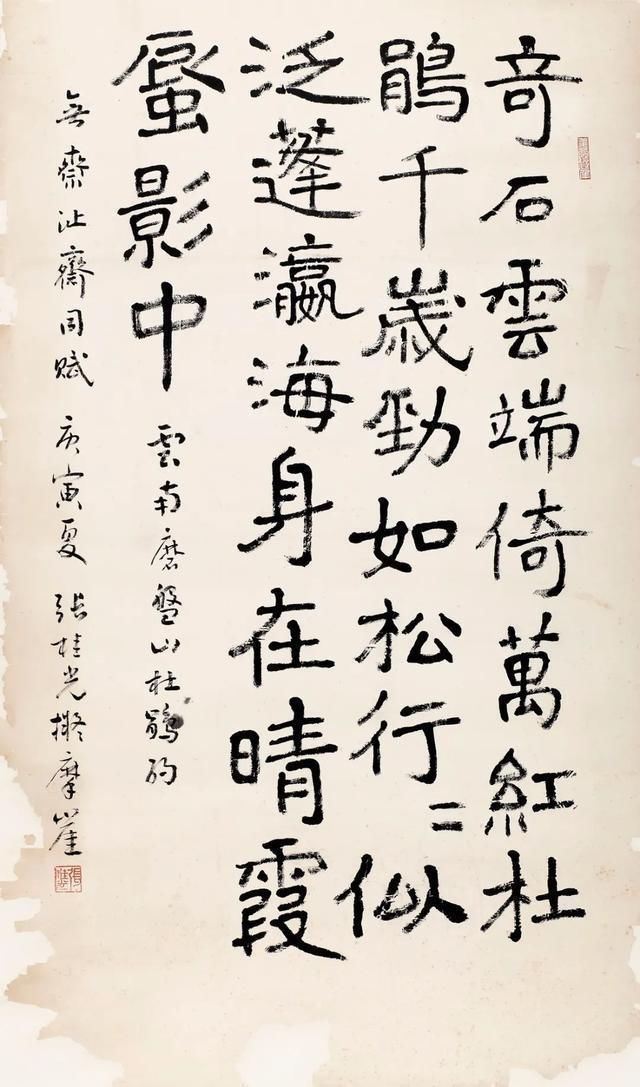 奇石雲端倚萬紅杜
鵑千歲勁如松行〻似
泛蓬瀛海身在晴霞
蜃影中
雲南磨盤山杜鵑
齋沚齋同賦 庚寅夏 張桂光擬摩崖